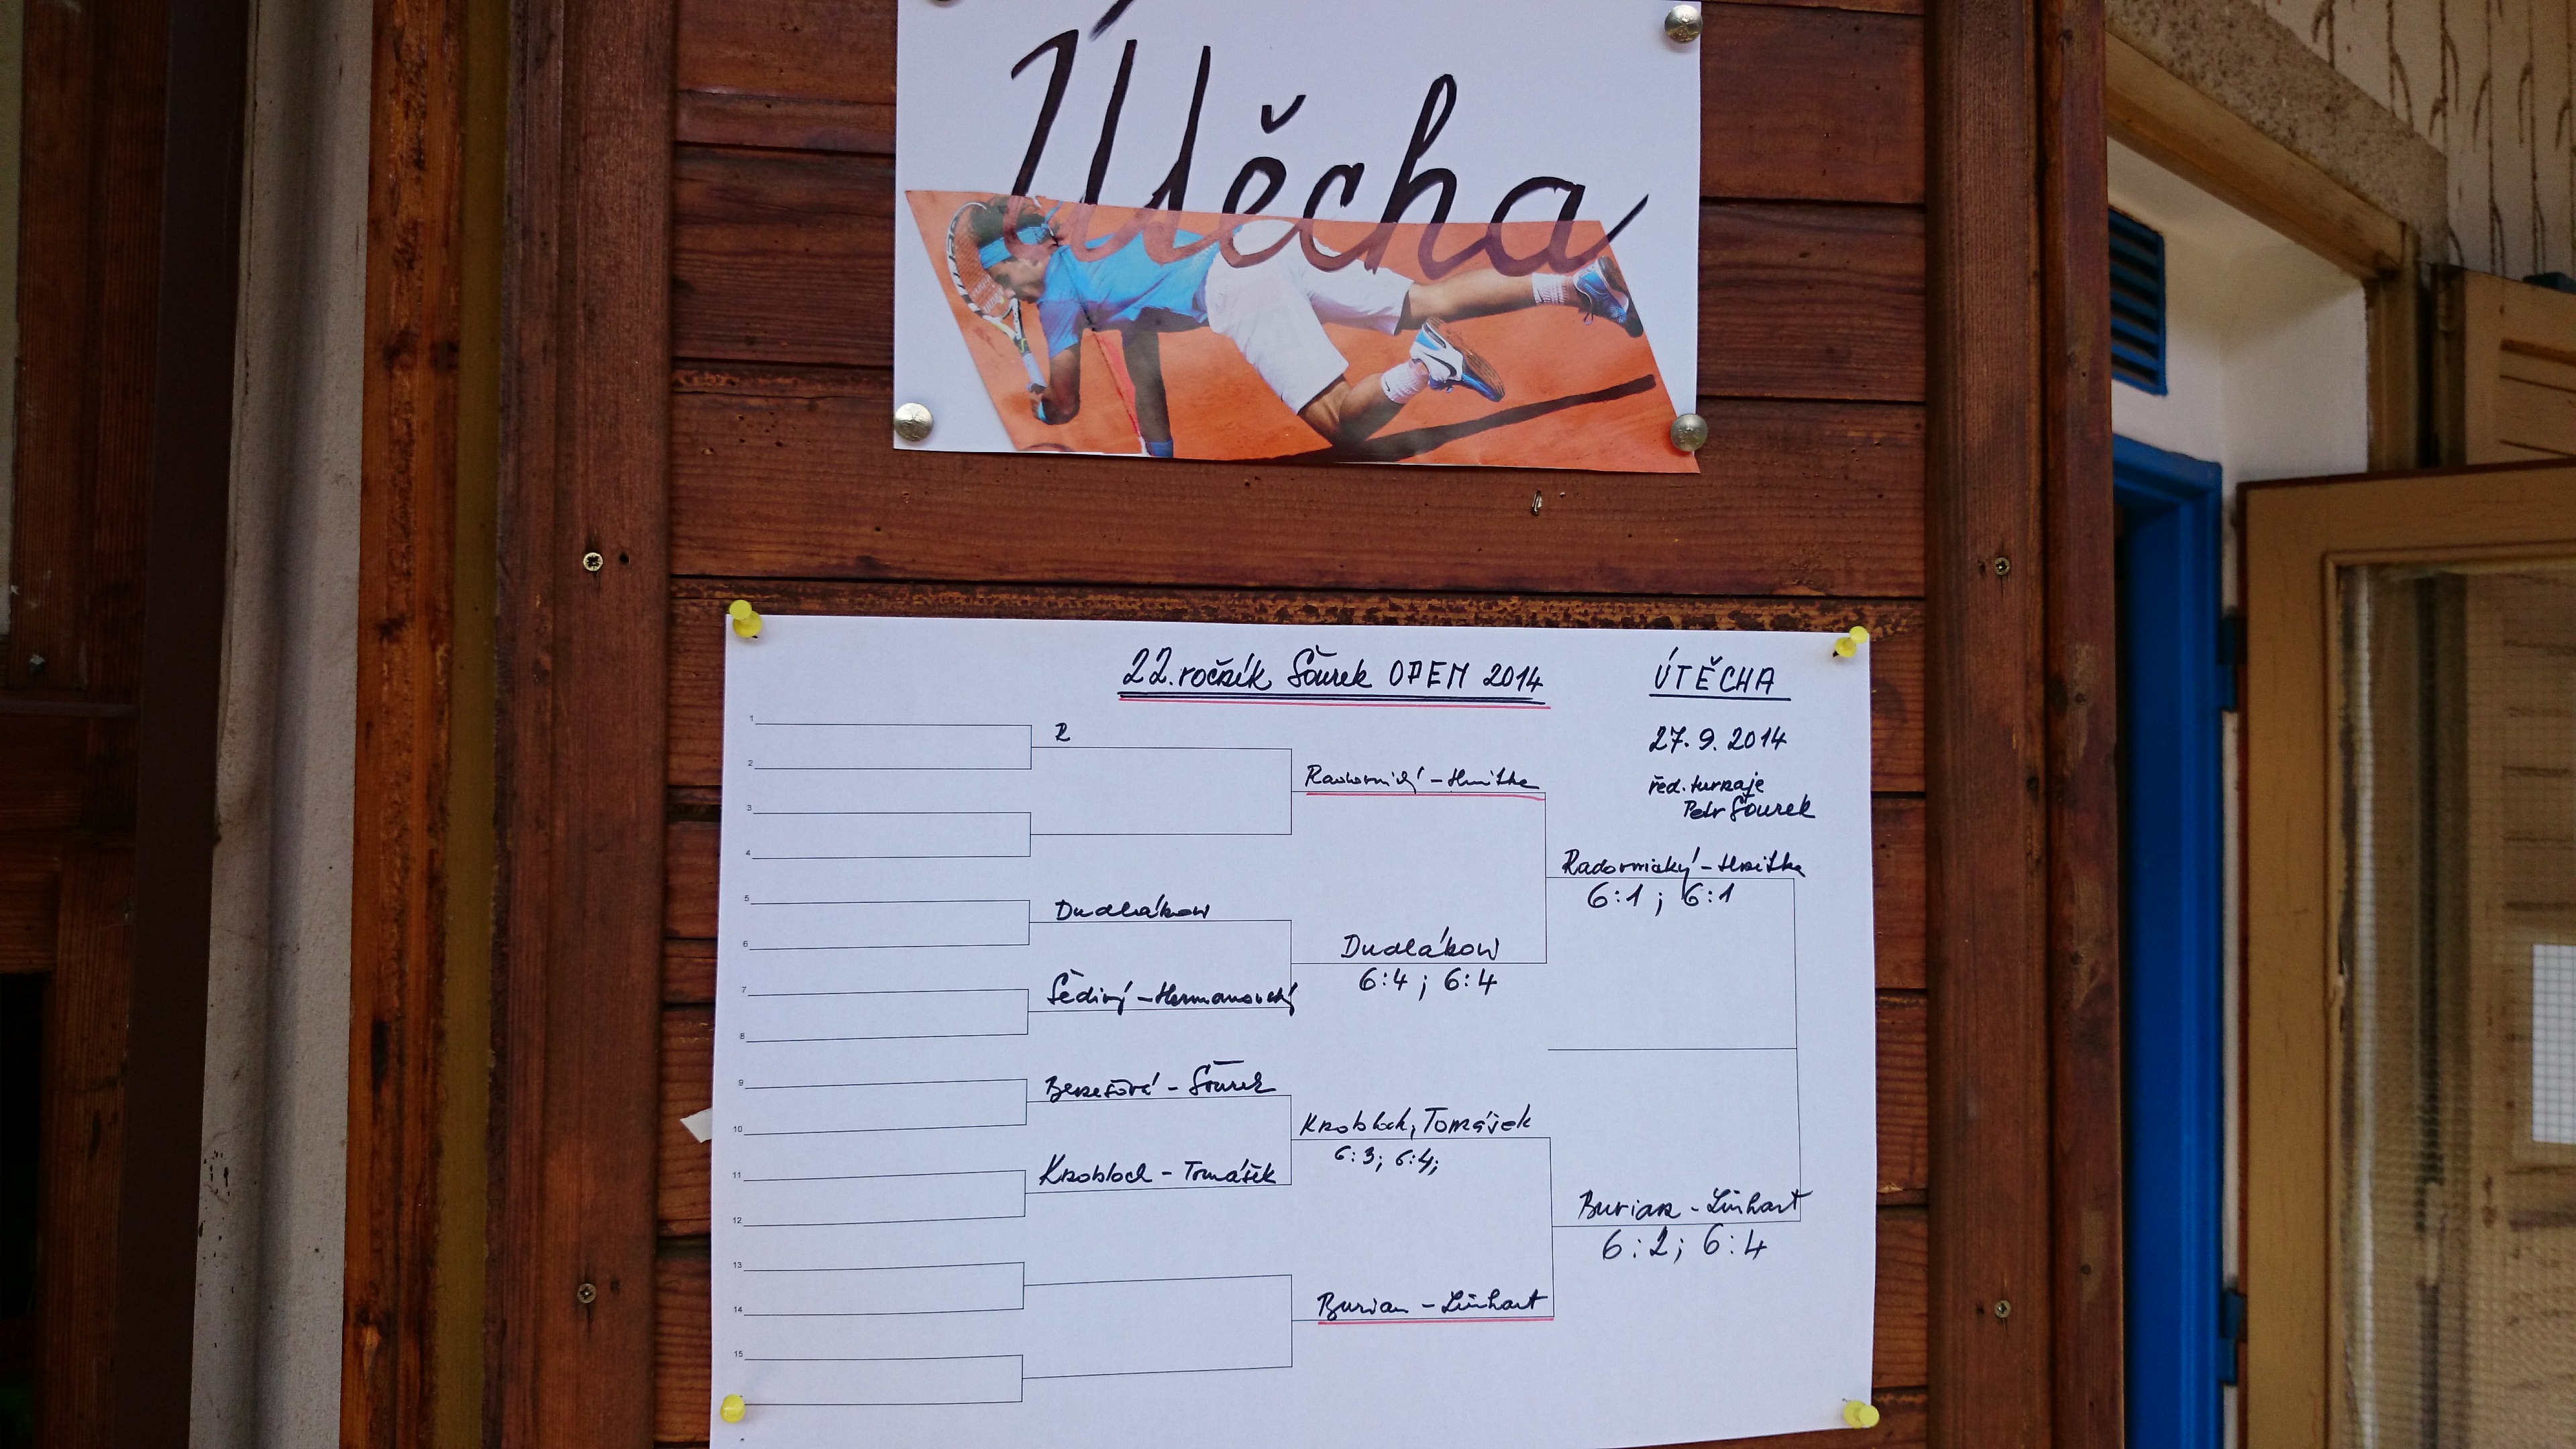 Útěcha
22. ročník Šourek OPEN 2014
ÚTĚCHA
27. 9. 2014
řed. turnaje
Petr Šourek
1
R
2
Radovnický - Hnitka
3
4
Radovnický - Hnitka
6:1 ; 6:1
5
Dudlákovi
6
Dudlákovi
6:4 ; 6:4
7
Šedivý - Hermanovský
8
9
Benešová - Šourek
10
Knobloch, Tomášek
6:3; 6:4;
11
Knobloch - Tomášek
12
Burian - Linhart
6:2; 6:4
13
14
Burian - Linhart
15